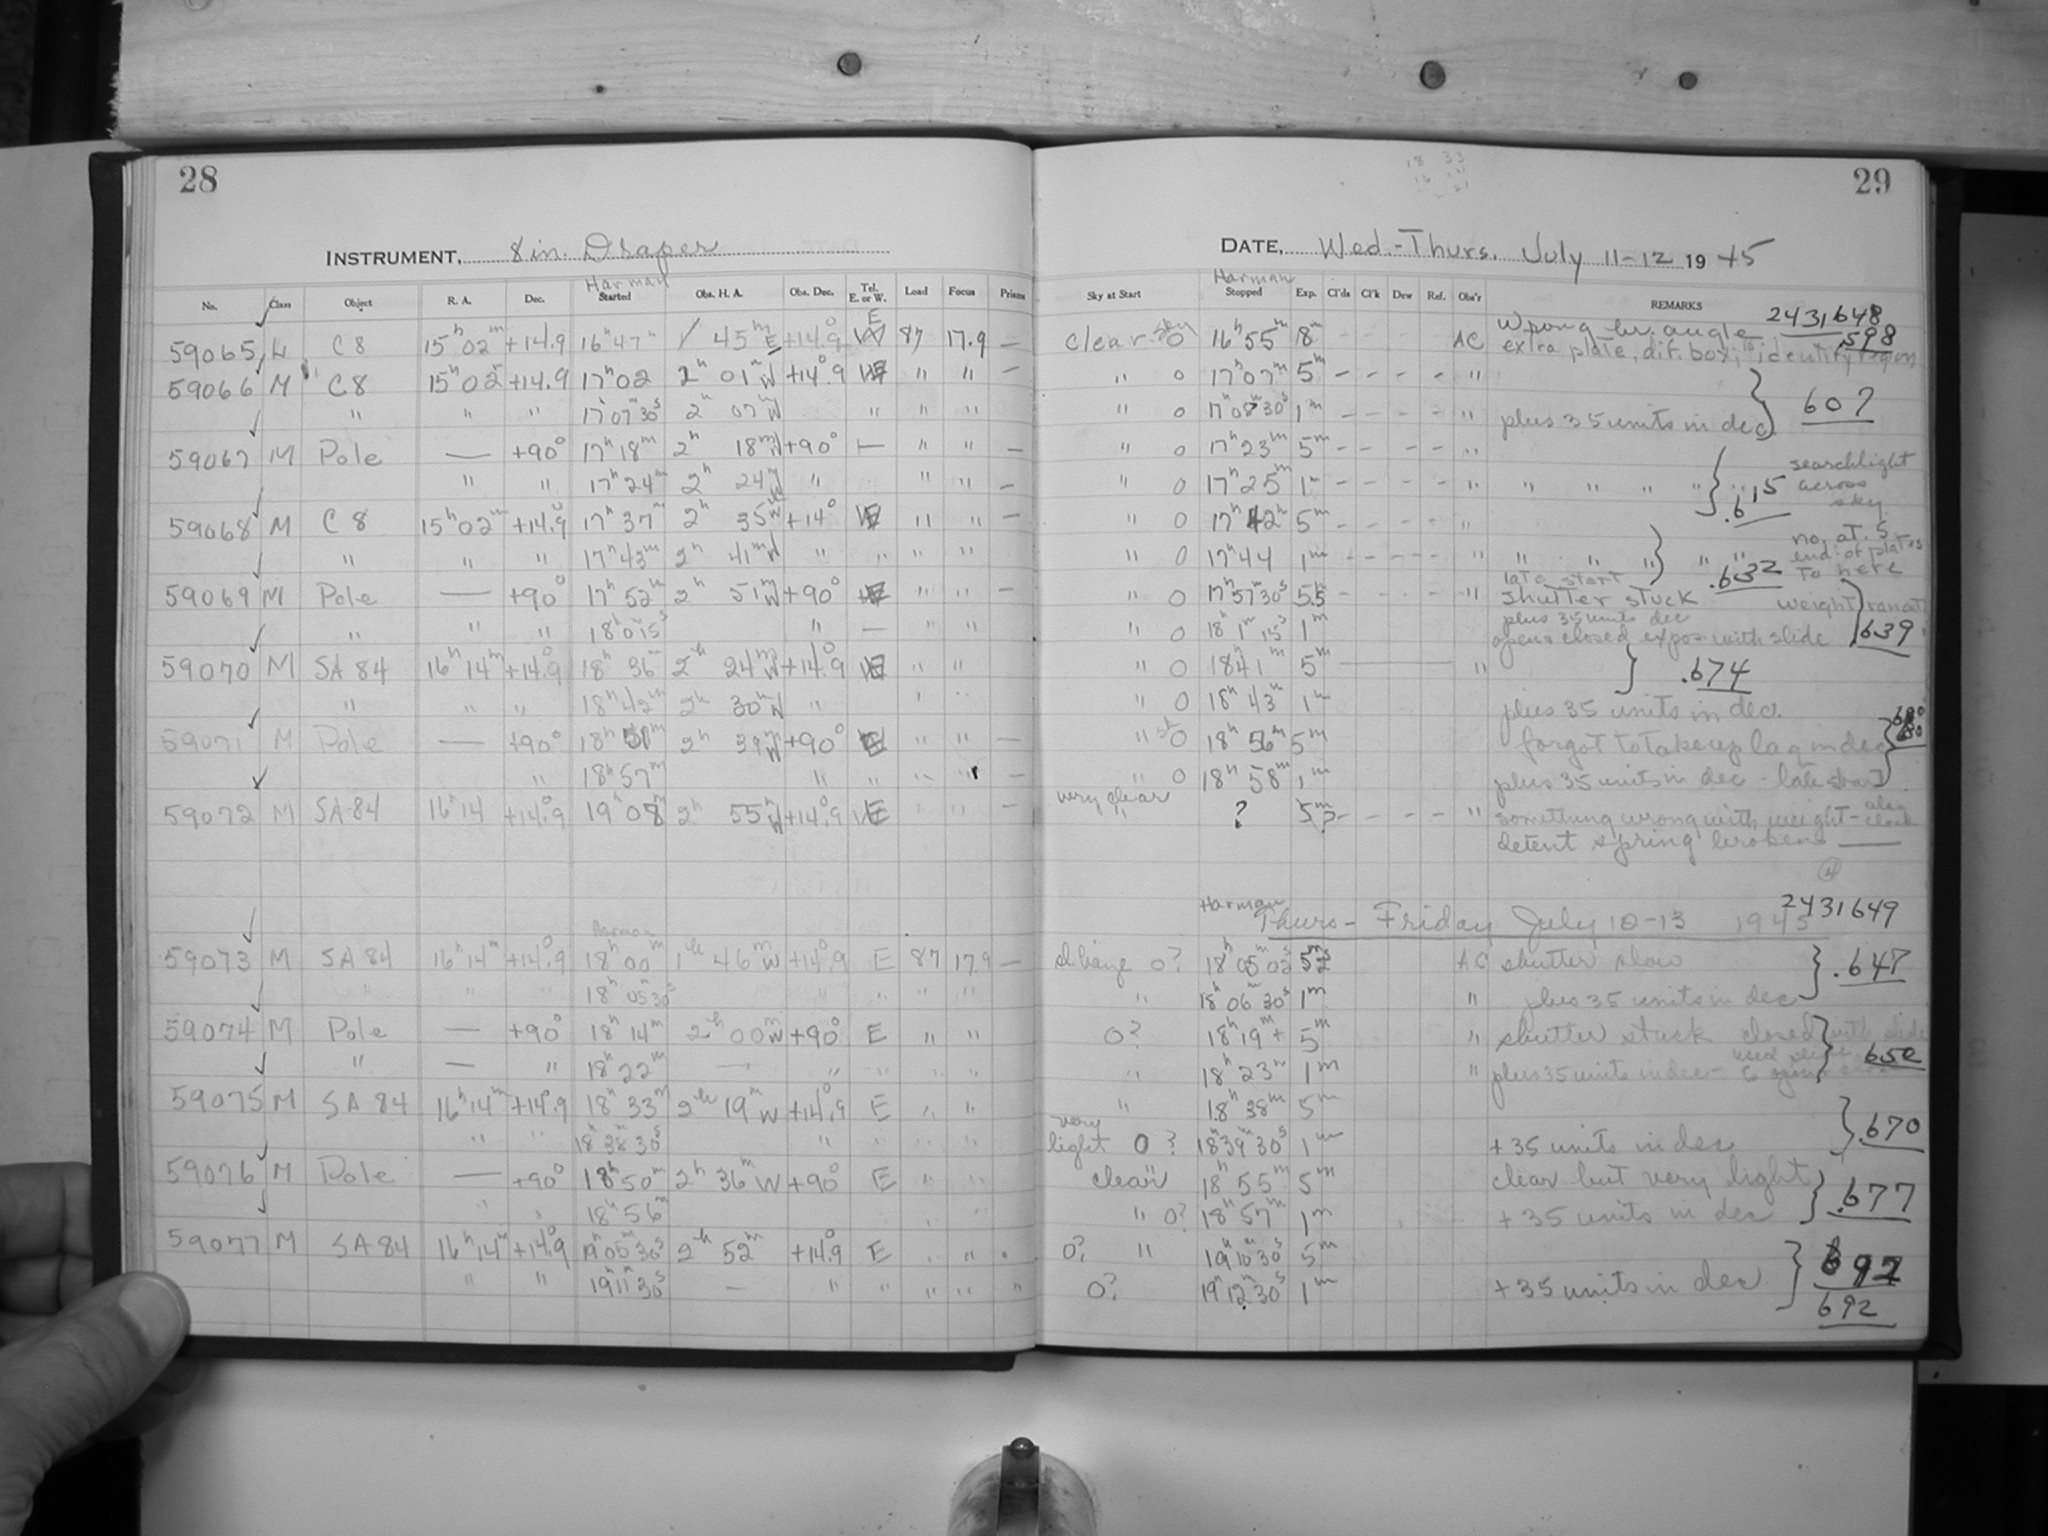 28
INSTRUMENT, 8 in. Draper
Harman
No. Class Object R. A. Dec. Started Obs. H. A. Obs. Dec. Tel. E. or W. Load Focus Prisms
59065 L C8 15h 02m +14.9 16h 47m 1 45m E +14.9 E 87 17.9 —
59066 M C8 15h 02m +14.9 17h 02 2h 01m W +14.9 E " " —
" " " 17h 07m 30s 2h 07m W " " "
59067 M Pole — +90° 17h 18m 2h 18m W +90° — " " —
" " 17h 24m 2h 24m W " " " —
59068 M C8 15h 02m +14.9 17h 37m 2h 35m W +14° E " " —
" " " 17h 43m 2h 41m W " " " "
59069 M Pole — +90° 17h 52m 2h 51m W +90° " " —
" " " 18h 0m 15s " — " "
59070 M SA 84 16h 14m +14.9 18h 36m 2h 24m W +14.9 E " "
" " " 18h 42m 2h 30m W " " "
59071 M Pole — +90° 18h 51m 2h 39m W +90° E " " —
" 18h 57m " " " " —
59072 M SA 84 16h 14 +14.9 19h 08m 2h 55m W +14.9 E " " —
Harman
59073 M SA 84 16h 14m +14.9 18h 00m 1h 46m W +14.9 E 87 17.9 —
" " " 18h 05 30s " " " "
59074 M Pole — +90° 18h 14m 2h 00m W +90° E " "
" — " 18h 22m — " " " "
59075 M SA 84 16h 14m +14.9 18h 33m 2h 19m W +14.9 E " "
" " 18h 38m 30s " " " "
59076 M Pole — +90° 18h 50m 2h 36m W +90° E " "
" " 18h 56m " "
59077 M SA 84 16h 14m +14.9 19h 05m 30s 2h 52m +14.9 E " "
" " 19h 11m 30s — " " " " "
29
18 33
DATE, Wed.-Thurs. July 11-12 1945
Harman
Sky at Start Stopped Exp. Cl'ds Cl'k Dew Ref. Obs'r REMARKS
2431648
clear sky 0 16h 55m 8m - - - AC Wrong hr. angle .598
extra plate, dif. box, to identify region
" 0 17h 07m 5m - - - - "
" 0 17h 08m 30s 1m - - - - " plus 35 units in dec } 607
" 0 17h 23m 5m - - - - "
" 0 17h 25m 1m - - - - " " " " " } .615 searchlight across sky
" 0 17h 42m 5m - - - - "
" 0 17h 44 1m - - - - " " " " } " " .632 no. at S end of plates to here
late start
" 0 17h 57m 30s 5.5 - - - - " shutter stuck weight ran out
plus 35 units dec
" 0 18h 1m 15s 1m open & closed expos with slide .639
" 0 18h 41m 5m — " } .674
" 0 18h 43m 1m plus 35 units in dec.
" 0 18h 56m 5m forgot to take up lag in dec } 680
" 0 18h 58m 1m plus 35 units in dec - late start
very clear ? 5m? - - - - " something wrong with weight - also clock
detent spring broken —
2431649
Harman
Thurs - Friday July 10-13 1945
sl. haze 0? 18h 05m 02s AC shutter slow } .647
" 18h 06m 30s 1m " plus 35 units in dec
0? 18h 19m + 5m " shutter stuck closed with slide
" 18h 23m 1m " plus 35 units in dec - used slide to open 652
" 18h 38m 5m
very light 0? 18h 39m 30s 1m + 35 units in dec } .670
clear 18h 55m 5m clear but very light } .677
" 0? 18h 57m 1m + 35 units in dec
0? " 19h 10m 30s 5m } 692
0? 19h 12m 30s 1m + 35 units in dec
692